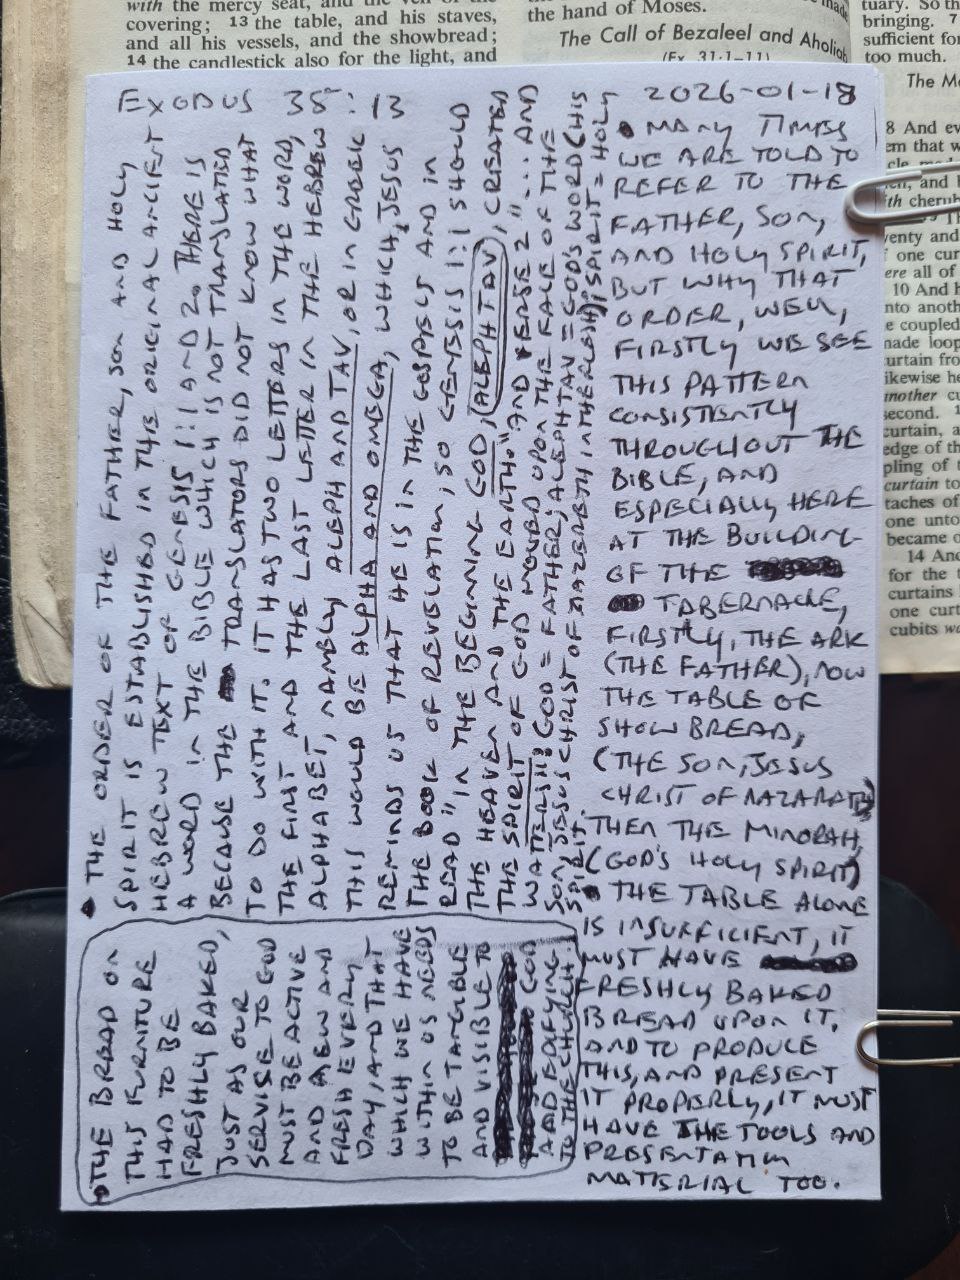 with the mercy seat, and the veil of the
covering; 13 the table, and his staves,
and all his vessels, and the showbread;
14 the candlestick also for the light, and
the hand of Moses.
The Call of Bezaleel and Aholiab
(Ex. 31:1-11)
made
tuary. So th
bringing. 7
sufficient for
too much.
The M
8 And ev
em that w
and h
ith cherub
venty and
one cur
ere all of
10 And h
nto anoth
e coupled
nade loop
urtain fro
ikewise he
nother cu
second. 1
curtain, a
edge of th
pling of t
curtain to
taches of
one unto
became o
14 And
for the t
curtains
one curt
cubits wa
EXODUS 35:13
2026-01-18
• MANY TIMES
WE ARE TOLD TO
REFER TO THE
FATHER, SON,
AND HOLY SPIRIT,
BUT WHY THAT
ORDER, WELL,
FIRSTLY WE SEE
THIS PATTERN
CONSISTENTLY
THROUGHOUT THE
BIBLE, AND
ESPECIALLY HERE
AT THE BUILDING
OF THE
TABERNACLE,
FIRSTLY, THE ARK
(THE FATHER), NOW
THE TABLE OF
SHOWBREAD,
(THE SON, JESUS
CHRIST OF NAZARATH)
THEN THE MINORAH,
(GOD'S HOLY SPIRIT)
• THE TABLE ALONE
IS INSUFFICIENT, IT
MUST HAVE
FRESHLY BAKED
BREAD UPON IT,
AND TO PRODUCE
THIS, AND PRESENT
IT PROPERLY, IT MUST
HAVE THE TOOLS AND
PRESENTATION
MATERIAL TOO.
• THE ORDER OF THE FATHER, SON AND HOLY
SPIRIT IS ESTABLISHED IN THE ORIGINAL ANCIENT
HEBREW TEXT OF GENESIS 1:1 AND 2. THERE IS
A WORD IN THE BIBLE WHICH IS NOT TRANSLATED
BECAUSE THE TRANSLATORS DID NOT KNOW WHAT
TO DO WITH IT. IT HAS TWO LETTERS IN THE WORD,
THE FIRST AND THE LAST LETTER IN THE HEBREW
ALPHABET, NAMELY ALEPH AND TAV, OR IN GREEK
THIS WOULD BE ALPHA AND OMEGA, WHICH, JESUS
REMINDS US THAT HE IS IN THE GOSPELS AND IN
THE BOOK OF REVELATION, SO GENESIS 1:1 SHOULD
READ "IN THE BEGINNING GOD, (ALEPH TAV), CREATED
THE HEAVEN AND THE EARTH." AND VERSE 2 "... AND
THE SPIRIT OF GOD MOVED UPON THE FACE OF THE
WATERS": GOD = FATHER; ALEPH TAV = GOD'S WORD (HIS
SON, JESUS CHRIST OF NAZERETH IN THE FLESH); SPIRIT = HOLY
SPIRIT.
• THE BREAD ON
THIS FURNITURE
HAD TO BE
FRESHLY BAKED,
JUST AS OUR
SERVISE TO GOD
MUST BE ACTIVE
AND ANEW AND
FRESH EVERY
DAY, AND THAT
WHICH WE HAVE
WITHIN US NEEDS
TO BE TANGIBLE
AND VISIBLE TO
GOD
AND EDIFYING
TO THE CHURCH.